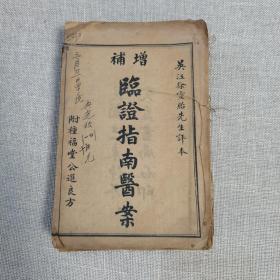 吴江徐靈胎先生評本
增補
臨證指南醫案
附種福堂公選良方